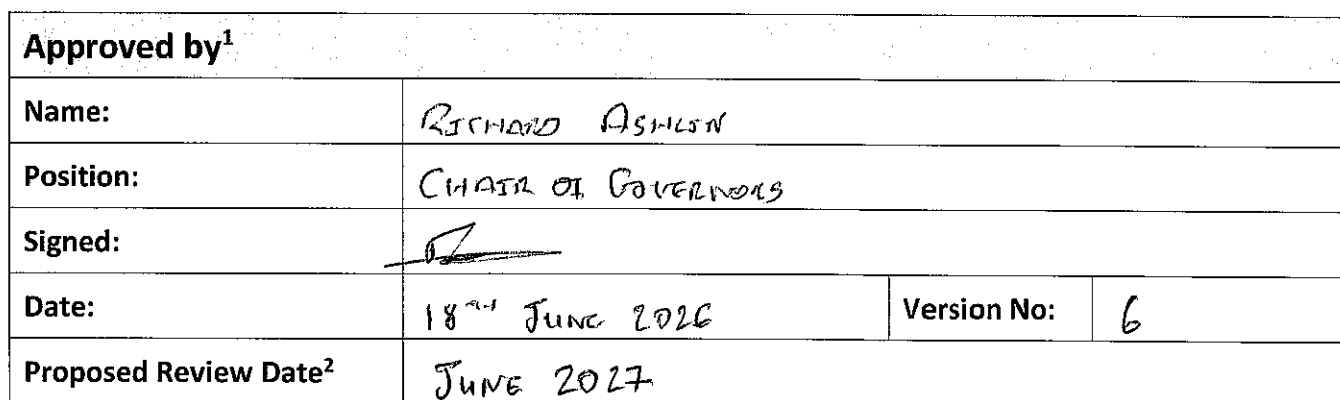 Approved by¹
Name: RICHARD ASHLIN
Position: CHAIR OF GOVERNORS
Signed:
Date: 18TH JUNE 2026 Version No: 6
Proposed Review Date² JUNE 2027